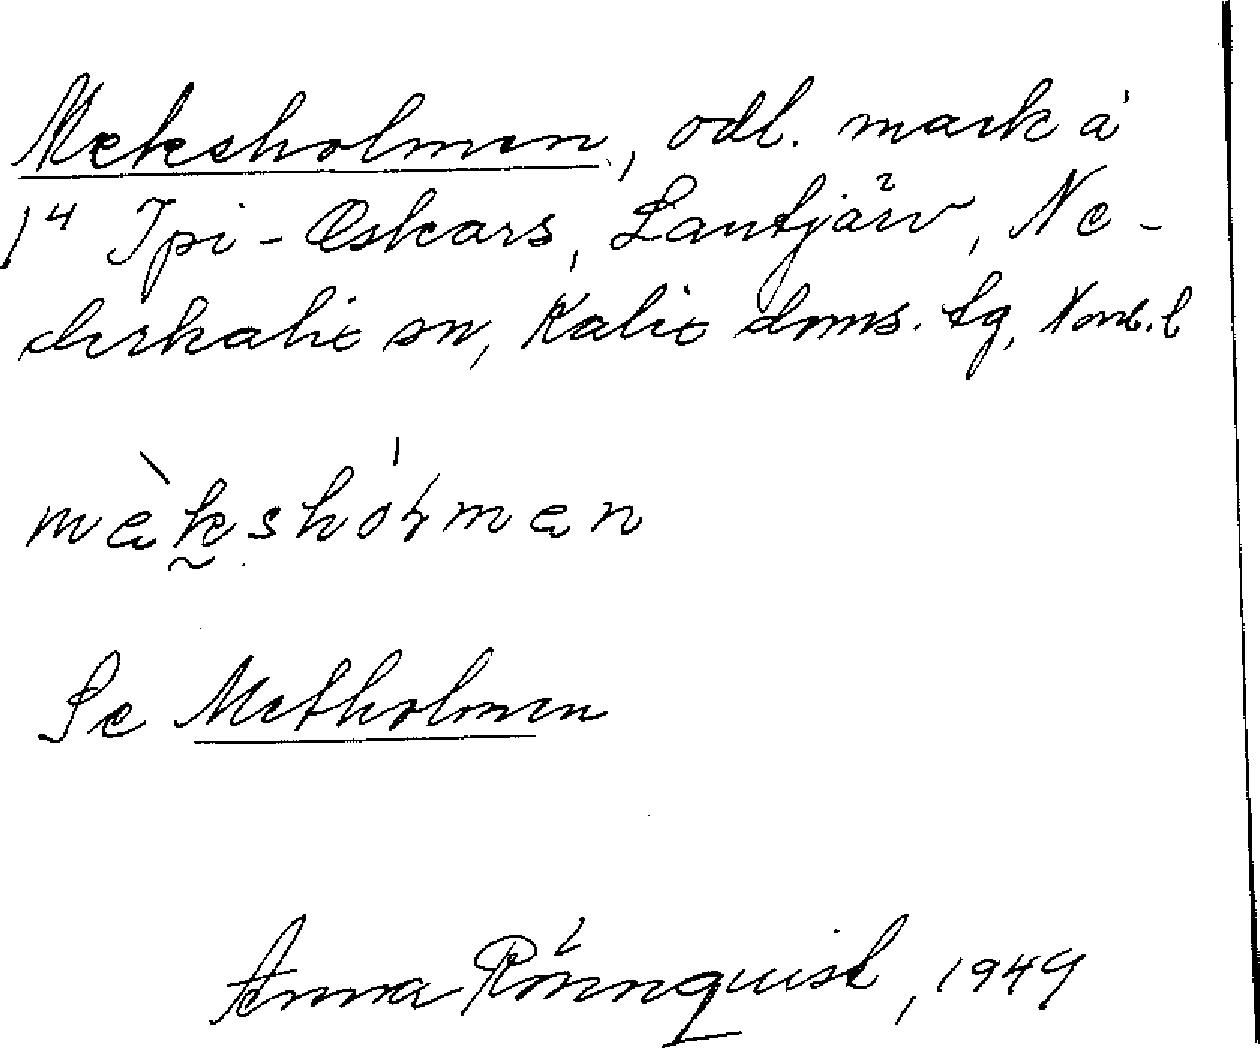 Meksholmen, odl. mark å
1⁴ Ipi-Oskars, Lantjärv, Ne-
derkalix sn, Kalix doms. tg, Norrb. l
mèk̰shóɫmen
Se Metholmen
Anna Rönnquist, 1949